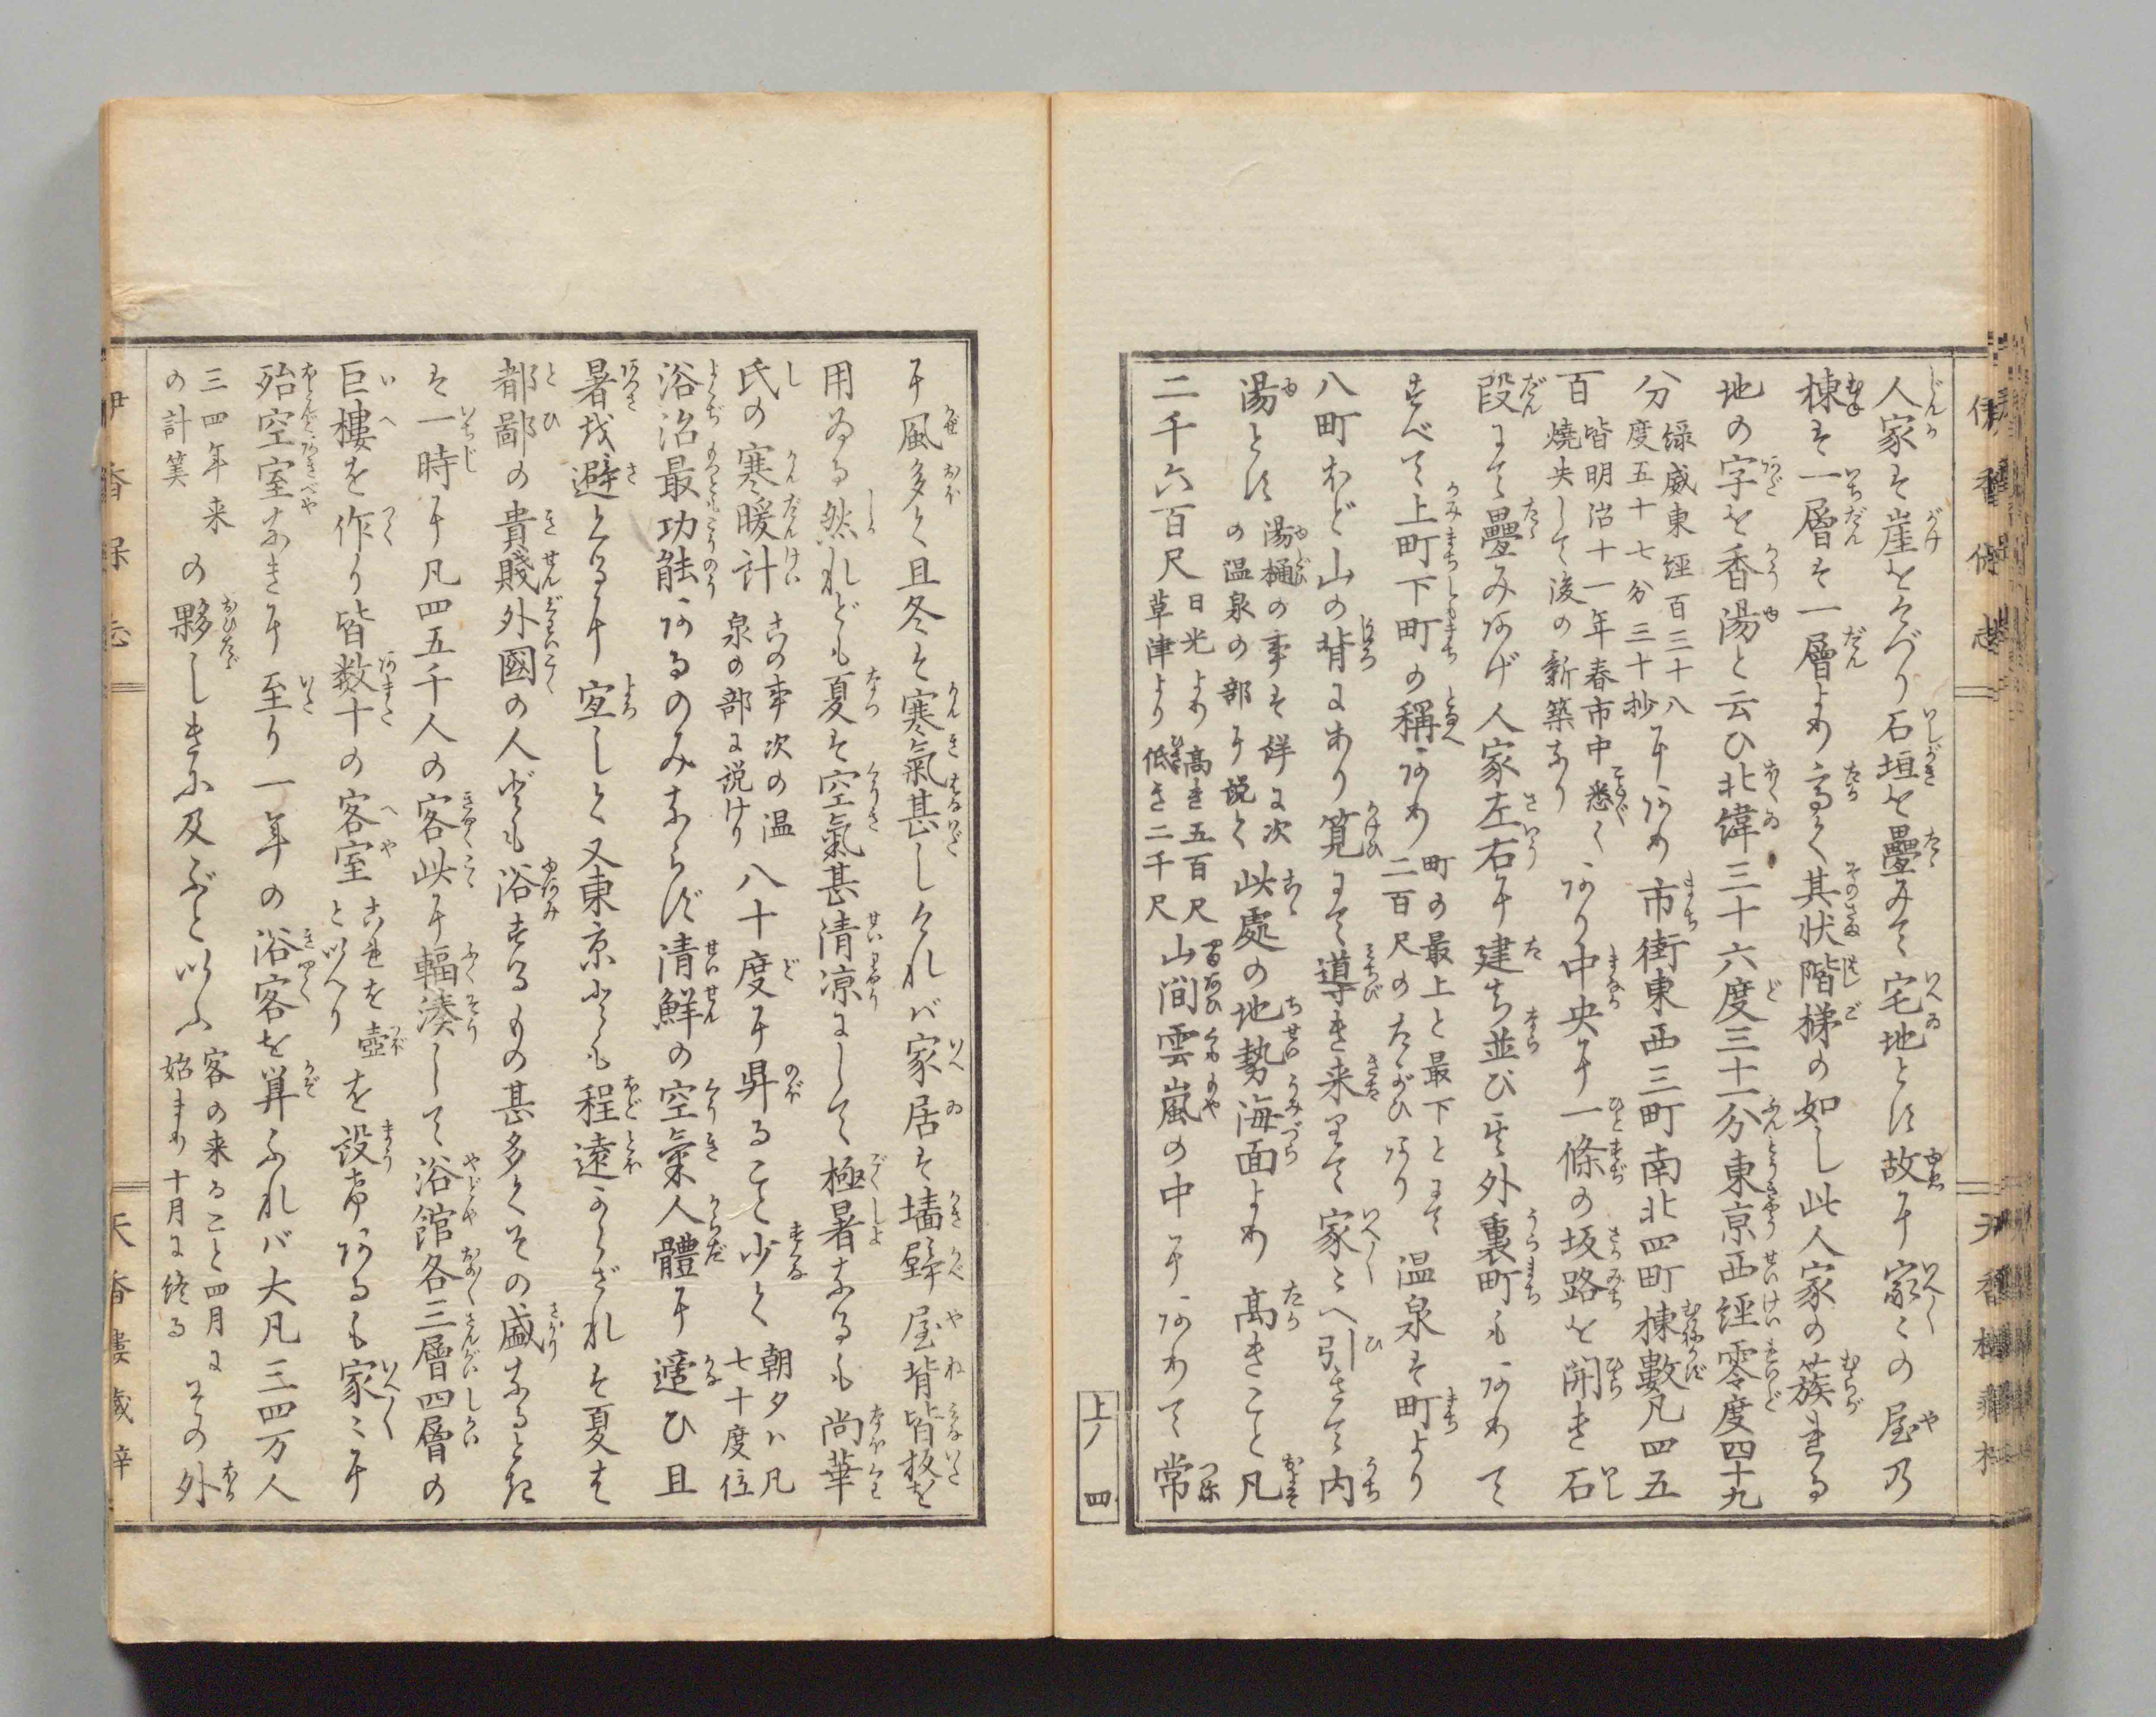 人家は崖をけづり石垣を疊みて宅地とす故に家〻の屋乃
棟は一層は一層より高く其状階梯の如し此人家の簇まる
地の字を香湯と云ひ北緯三十六度三十一分東京西經零度四十九
分
緑威東經百三十八
度五十七分三十抄
にあり市街東西三町南北四町棟數凡四五
百
皆明治十一年春市中悉く
燒失して後の新築なり
あり中央に一條の坂路を開き石
段にて疊みあげ人家左右に建ち並び其外裏町もありて
すべて上町下町の稱あり
町の最上と最下とにて
二百尺のたがひあり
温泉は町より
八町ほど山の背にあり筧にて導き来りて家〻へ引きて内
湯とす
湯樋の事は詳に次
の温泉の部に説く
此處の地勢海面より高きこと凡
二千六百尺
日光より高き五百尺
草津より低き二千尺
山間雲嵐の中にありて常
上ノ四
に風多く且冬は寒氣甚しければ家居は墻壁屋背皆板を
用ゐる然れども夏は空氣甚清凉にして極暑なるも尚華
氏の寒暖計
この事次の温
泉の部に説けり
八十度に昇ること少く
朝夕ハ凡
七十度位
浴治最功能あるのみならず清鮮の空氣人體に適ひ且
暑を避くるに宜しく又東京にも程遠からざれは夏は
都鄙の貴賤外國の人にも浴するもの甚多くその盛なるとき
は一時に凡四五千人の客此に輻湊して浴舘各三層四層の
巨樓を作り皆数十の客室
これを壺
と以へり
を設けあるも家〻に
殆空室なきに至り一年の浴客を算ふれバ大凡三四万人
三四年来
の計算
の夥しきに及ぶと以ふ
客の来ること四月に
始まり十月に終る
その外